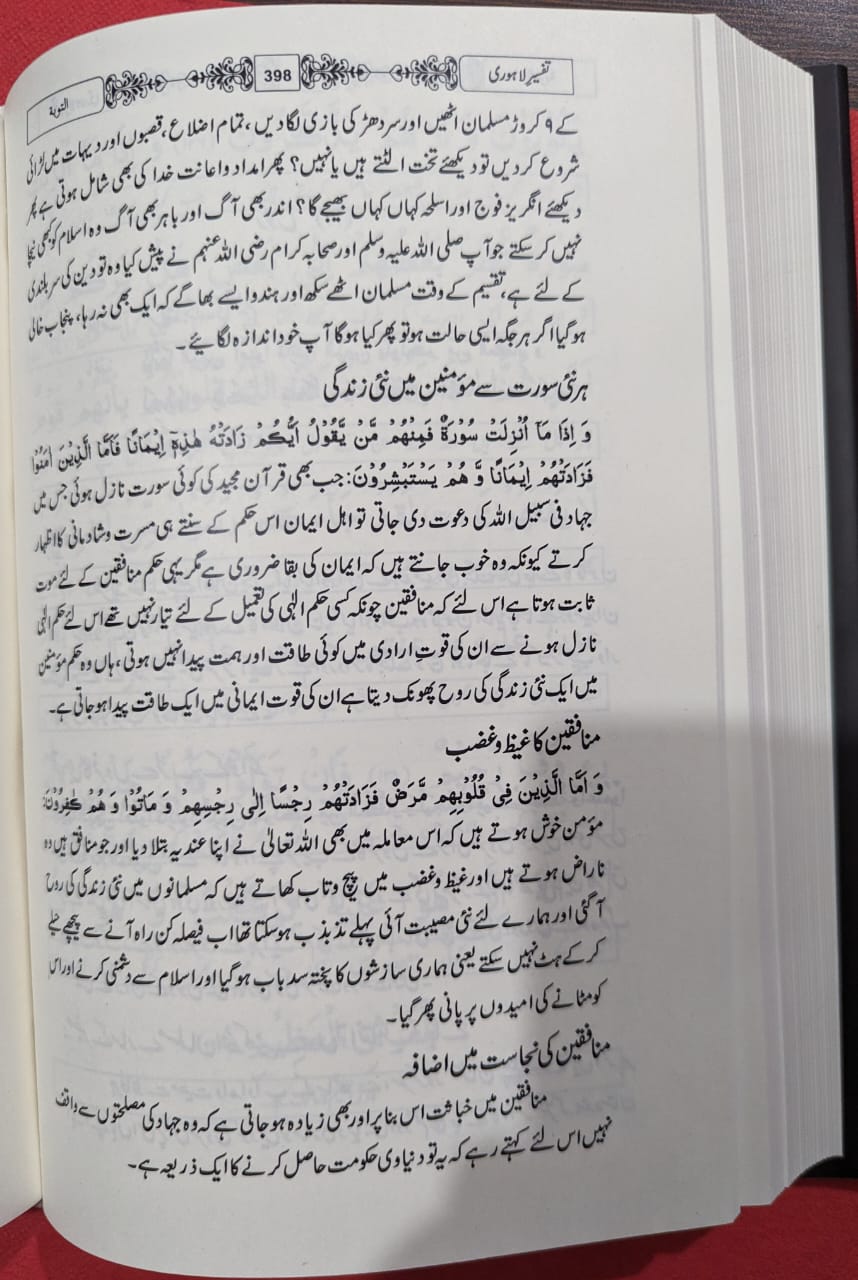 تفسیر لاہوری
398
التوبۃ
کے ۹ کروڑ مسلمان اٹھیں اور سر دھڑ کی بازی لگا دیں، تمام اضلاع، قصبوں اور دیہات میں لڑائی
شروع کر دیں تو دیکھئے تخت الٹتے ہیں یا نہیں؟ پھر امداد و اعانت خدا کی بھی شامل ہوتی ہے پھر
دیکھئے انگریز فوج اور اسلحہ کہاں کہاں بھیجے گا؟ اندر بھی آگ اور باہر بھی آگ وہ اسلام کو کبھی نیچا
نہیں کر سکتے جو آپ صلی اللہ علیہ وسلم اور صحابہ کرام رضی اللہ عنہم نے پیش کیا وہ تو دین کی سربلندی
کے لئے ہے، تقسیم کے وقت مسلمان اٹھے سکھ اور ہندو ایسے بھاگے کہ ایک بھی نہ رہا، پنجاب خالی
ہو گیا اگر ہر جگہ ایسی حالت ہو تو پھر کیا ہوگا آپ خود اندازہ لگائیے۔
ہر نئی سورت سے مؤمنین میں نئی زندگی
وَ اِذَا مَآ اُنْزِلَتْ سُوْرَةٌ فَمِنْهُمْ مَّنْ يَّقُوْلُ اَيُّكُمْ زَادَتْهُ هٰذِهٖٓ اِيْمَانًا فَاَمَّا الَّذِيْنَ اٰمَنُوْا
فَزَادَتْهُمْ اِيْمَانًا وَّ هُمْ يَسْتَبْشِرُوْنَ: جب بھی قرآن مجید کی کوئی سورت نازل ہوئی جس میں
جہاد فی سبیل اللہ کی دعوت دی جاتی تو اہل ایمان اس حکم کے سنتے ہی مسرت و شادمانی کا اظہار
کرتے کیونکہ وہ خوب جانتے ہیں کہ ایمان کی بقا ضروری ہے مگر یہی حکم منافقین کے لئے موت
ثابت ہوتا ہے اس لئے کہ منافقین چونکہ کسی حکم الٰہی کی تعمیل کے لئے تیار نہیں تھے اس لئے حکم الٰہی
نازل ہونے سے ان کی قوتِ ارادی میں کوئی طاقت اور ہمت پیدا نہیں ہوتی، ہاں وہ حکم مؤمنین
میں ایک نئی زندگی کی روح پھونک دیتا ہے ان کی قوت ایمانی میں ایک طاقت پیدا ہو جاتی ہے۔
منافقین کا غیظ و غضب
وَ اَمَّا الَّذِيْنَ فِيْ قُلُوْبِهِمْ مَّرَضٌ فَزَادَتْهُمْ رِجْسًا اِلٰى رِجْسِهِمْ وَ مَاتُوْا وَ هُمْ كٰفِرُوْنَ:
مؤمن خوش ہوتے ہیں کہ اس معاملہ میں بھی اللہ تعالیٰ نے اپنا عندیہ بتلا دیا اور جو منافق ہیں وہ
ناراض ہوتے ہیں اور غیظ و غضب میں پیچ و تاب کھاتے ہیں کہ مسلمانوں میں نئی زندگی کی روح
آ گئی اور ہمارے لئے نئی مصیبت آئی پہلے تذبذب ہو سکتا تھا اب فیصلہ کن راہ آنے سے پیچھے حیلے
کر کے ہٹ نہیں سکتے یعنی ہماری سازشوں کا پختہ سدباب ہو گیا اور اسلام سے دشمنی کرنے اور اس
کو مٹانے کی امیدوں پر پانی پھر گیا۔
منافقین کی نجاست میں اضافہ
منافقین میں خباثت اس بنا پر اور بھی زیادہ ہو جاتی ہے کہ وہ جہاد کی مصلحتوں سے واقف
نہیں اس لئے کہتے رہے کہ یہ تو دنیاوی حکومت حاصل کرنے کا ایک ذریعہ ہے۔